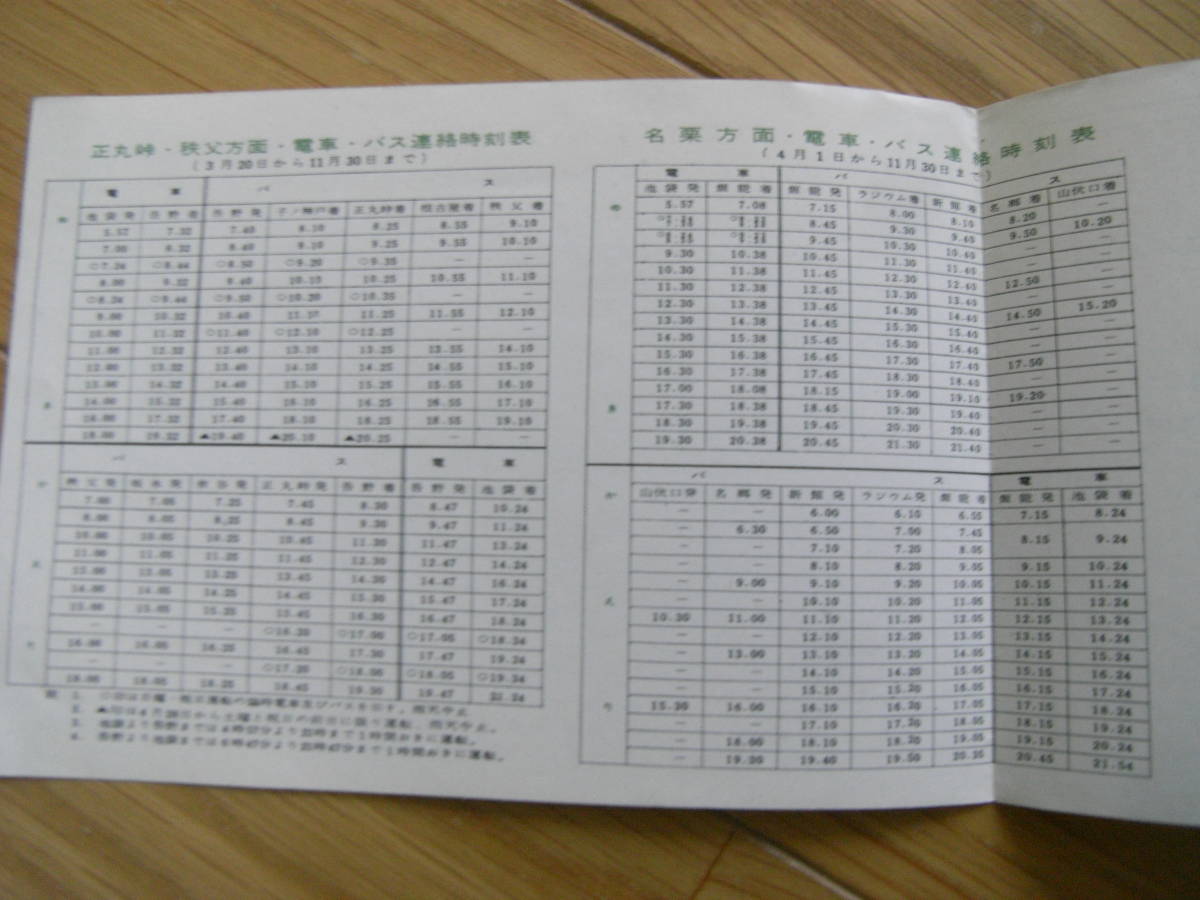 正丸峠・秩父方面・電車・バス連絡時刻表
(3月20日から11月30日まで)
電 車 バ ス
池袋発 吾野着 吾野発 子ノ神戸着 正丸峠着 秩父着
5.57 7.32 7.40 8.10 8.25 8.55 9.10
7.00 8.32 8.40 9.10 9.25 9.55 10.10
○7.24 ○8.44 ○8.50 ○9.20 ○9.35 — —
8.00 9.32 9.40 10.10 10.25 10.55 11.10
○8.24 ○9.44 ○9.50 ○10.20 ○10.35 — —
9.00 10.32 10.40 11.25 11.55 12.10
10.00 11.32 ○11.40 ○12.10 ○12.25 — —
11.00 12.32 12.40 13.10 13.25 13.55 14.10
12.00 13.32 13.40 14.10 14.25 14.55 15.10
13.00 14.32 14.40 15.10 15.25 15.55 16.10
14.00 15.32 15.40 16.10 16.25 16.55 17.10
16.00 17.32 17.40 18.10 18.25 18.55 19.10
18.00 19.32 ▲19.40 ▲20.10 ▲20.25 — —
バ ス 電 車
秩父発 正丸峠発 吾野着 吾野発 池袋着
7.00 7.05 7.25 7.45 8.30 8.47 10.24
8.00 8.05 8.25 8.45 9.30 9.47 11.24
10.00 10.05 10.25 10.45 11.30 11.47 13.24
11.00 11.05 11.25 11.45 12.30 12.47 14.24
13.00 13.05 13.25 13.45 14.30 14.47 16.24
14.00 14.05 14.25 14.45 15.30 15.47 17.24
15.00 15.05 15.25 15.45 16.30 16.47 18.24
— — — ○16.20 ○17.00 ○17.05 ○18.34
16.00 16.05 16.25 16.45 17.30 17.47 19.24
— — — ○17.20 ○18.00 ○18.05 ○19.34
18.00 18.05 18.25 18.45 19.30 19.47 21.24
1. ○印は日曜・祝日運転の臨時電車及びバスを示す。雨天中止
2. ▲印は4月 日から土曜と祝日の前日に限り運転、雨天中止。
3. 池袋より吾野までは 時まで1時間おきに運転。
4. 吾野より池袋までは6時47分より21時47分まで1時間おきに運転。
名栗方面・電車・バス連絡時刻表
(4月1日から11月30日まで)
電 車 バ ス
池袋発 飯能着 飯能発 ラジウム着 新館着 名郷着 山伏口着
5.57 7.08 7.15 8.00 8.10 8.20
8.45 9.30 9.40 9.50 10.20
9.45 10.30 10.40 — —
9.30 10.38 10.45 11.30 11.40 — —
10.30 11.38 11.45 12.30 12.40 12.50 —
11.30 12.38 12.45 13.30 13.40 — —
12.30 13.38 13.45 14.30 14.40 14.50 15.20
13.30 14.38 14.45 15.30 15.40 — —
14.30 15.38 15.45 16.30 16.40 — —
15.30 16.38 16.45 17.30 17.40 17.50 —
16.30 17.38 17.45 18.30 18.40 — —
17.00 18.08 18.15 19.00 19.10 19.20 —
17.30 18.38 18.45 19.30 19.40 — —
18.30 19.38 19.45 20.30 20.40 — —
19.30 20.38 20.45 21.30 21.40 — —
バ ス 電 車
山伏口発 名郷発 新館発 ラジウム発 飯能着 飯能発 池袋着
— — 6.00 6.10 6.55 7.15 8.24
— 6.30 6.50 7.00 7.45 8.15 9.24
— — 7.10 7.20 8.05
— — 8.10 8.20 9.05 9.15 10.24
— 9.00 9.10 9.20 10.05 10.15 11.24
— — 10.10 10.20 11.05 11.15 12.24
10.30 11.00 11.10 11.20 12.05 12.15 13.24
— — 12.10 12.20 13.05 13.15 14.24
— 13.00 13.10 13.20 14.05 14.15 15.24
— — 14.10 14.20 15.05 15.15 16.24
— — 15.10 15.20 16.05 16.15 17.24
15.30 16.00 16.10 16.20 17.05 17.15 18.24
— — 17.10 17.20 18.05 18.15 19.24
— 18.00 18.10 18.20 19.05 19.15 20.24
— 19.20 19.40 19.50 20.35 20.45 21.54